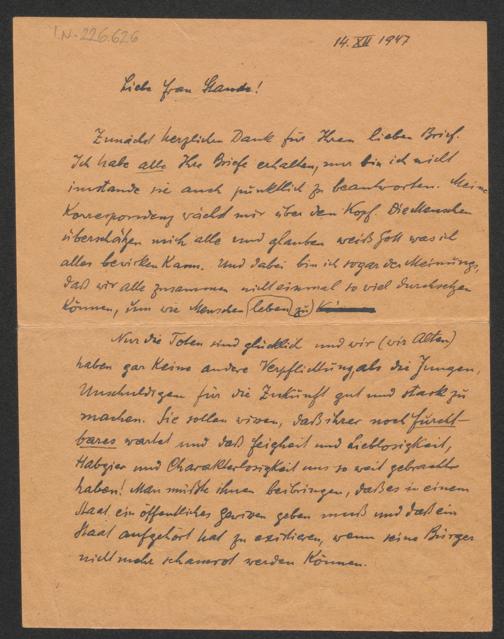 I.N-226.626
14.XII 1947
Liebe Frau Stande!
Zunächst herzlichen Dank für Ihren lieben Brief.
Ich habe alle Ihre Briefe erhalten, nur bin ich nicht
imstande sie auch pünktlich zu beantworten. Meine
Korrespondenz wächst mir über den Kopf. Die Menschen
überschätzen mich alle und glauben weiß Gott was ich
alles bewirken kann. Und dabei bin ich sogar der Meinung,
daß wir alle zusammen nicht einmal so viel durchsetzen
können, um wie Menschen leben zu
Nur die Toten sind glücklich und wir (wir Alten)
haben gar keine andere Verpflichtung als die Jungen,
Unschuldigen für die Zukunft gut und stark zu
machen. Sie sollen wissen, daß ihrer noch Furcht-
bares wartet und daß Feigheit und Lieblosigkeit,
Habgier und Charakterlosigkeit uns so weit gebracht
haben! Man müßte ihnen beibringen, daß es in einem
Staat ein öffentliches Gewissen geben muß und daß ein
Staat aufgehört hat zu existieren, wenn seine Bürger
nicht mehr schamrot werden können.